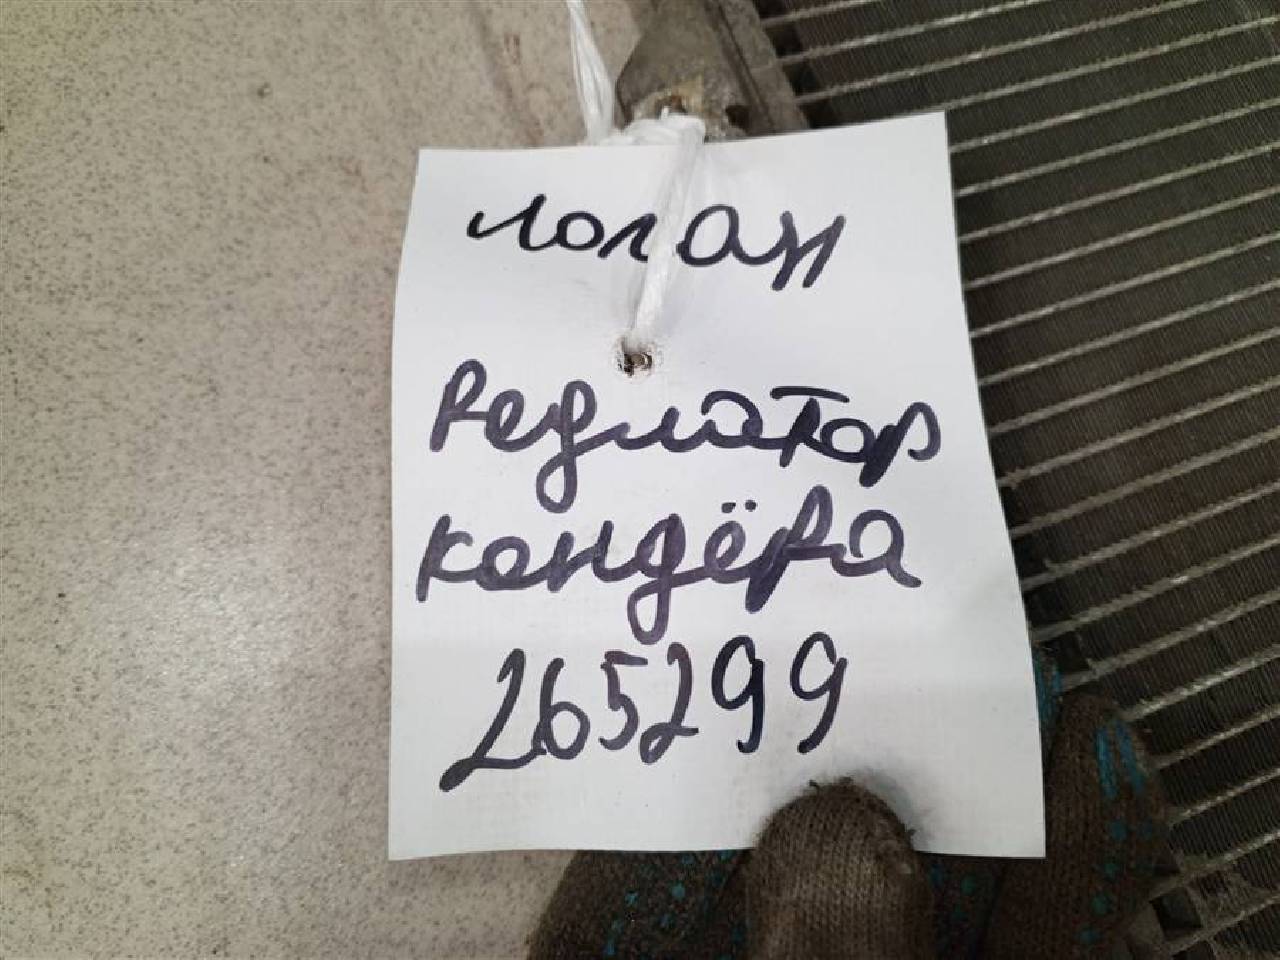 Логан
Редлятор
кондёра
265299